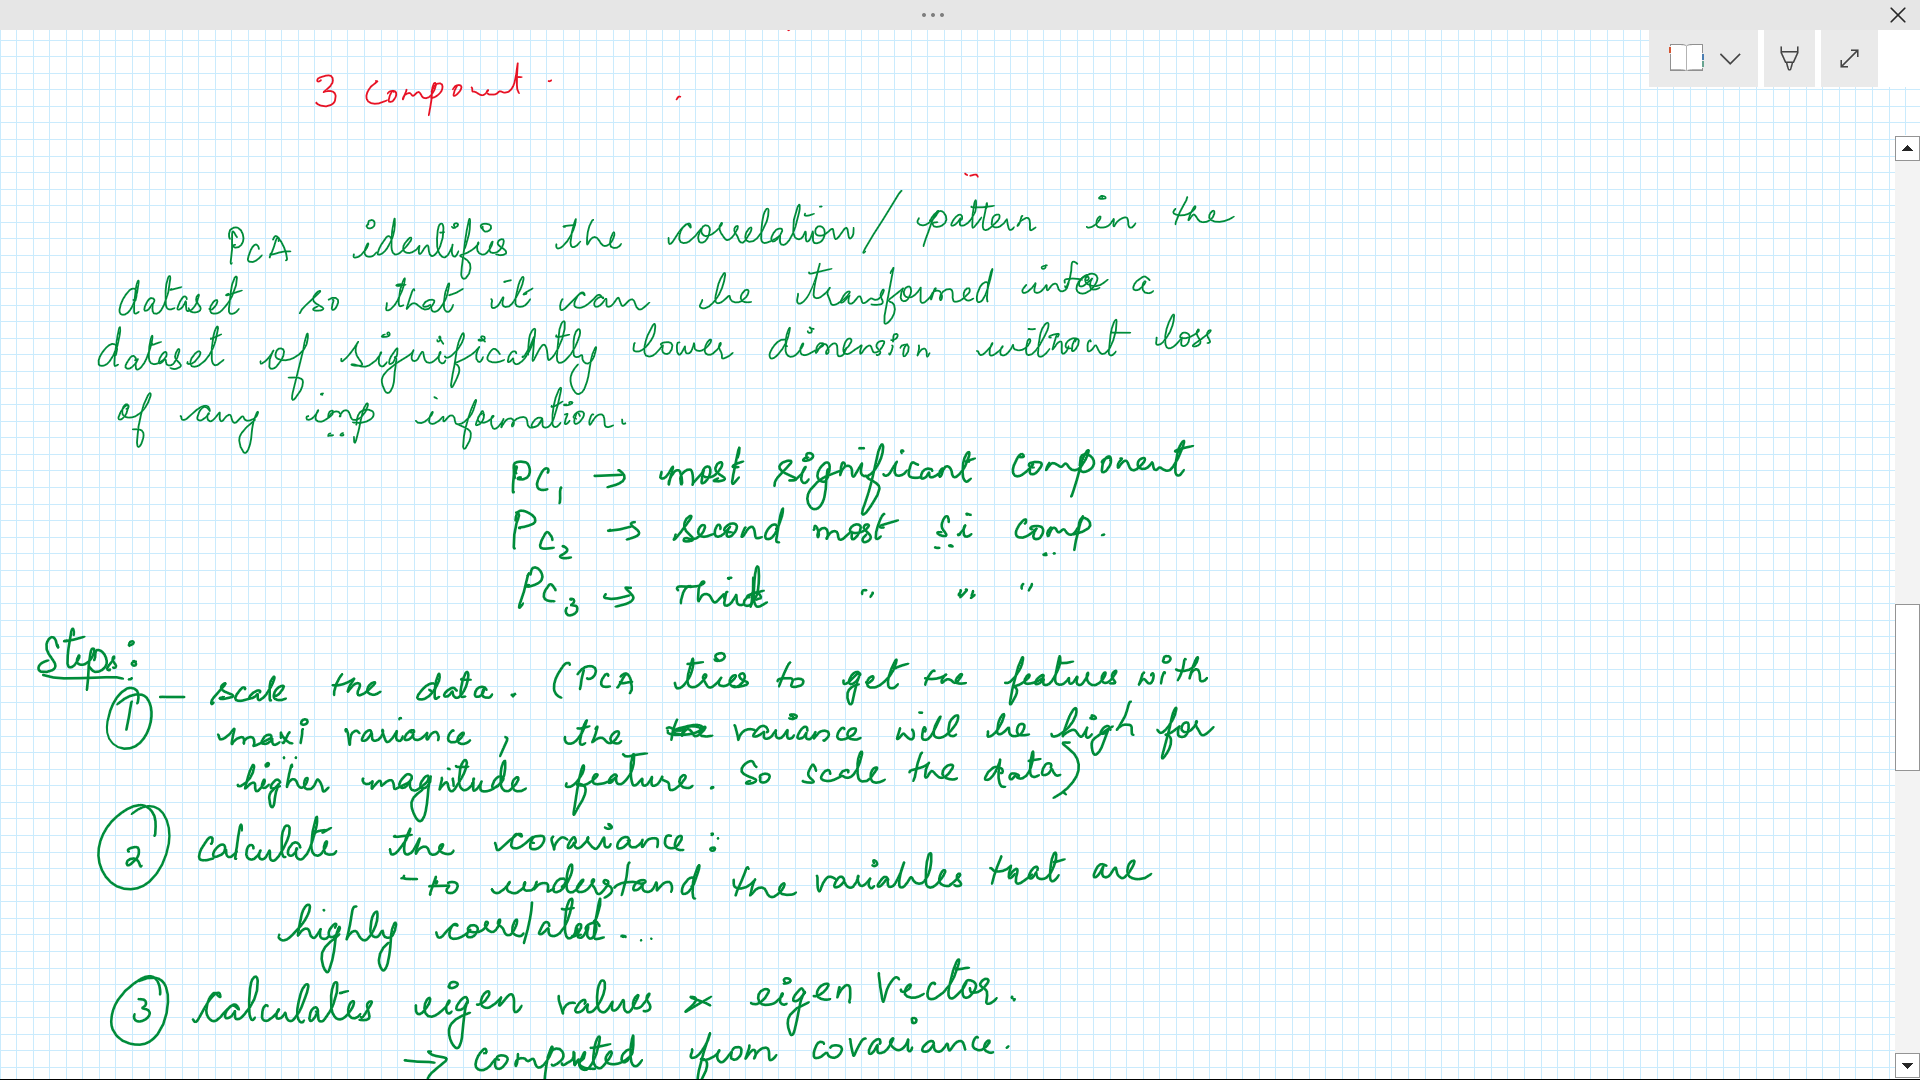 3 Component.
PCA identifies the correlation/pattern in the
dataset so that it can be transformed into a
dataset of significantly lower dimension without loss
of any imp information.
PC1 → most significant component
PC2 → second most si comp.
PC3 → Third " " "
Steps:
① – scale the data. (PCA tries to get the features with
maxi variance, the variance will be high for
higher magnitude feature. So scale the data)
② Calculate the covariance:
- to understand the variables that are
highly correlated...
③ Calculates eigen values & eigen Vector.
→ computed from covariance.